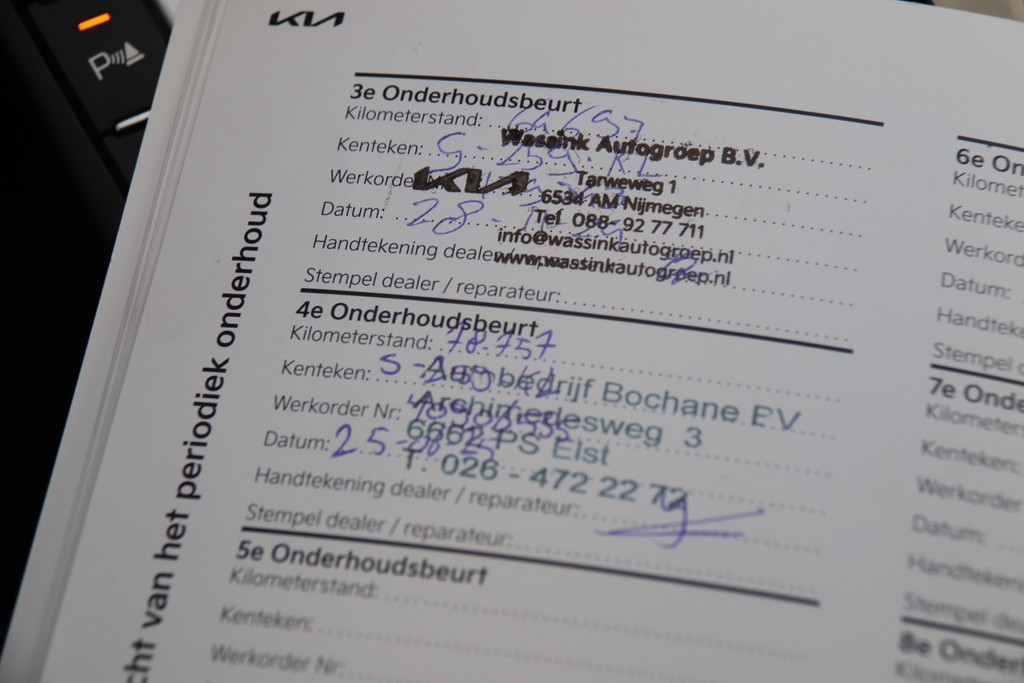 KIA
P
cht van het periodiek onderhoud
3e Onderhoudsbeurt
Kilometerstand:
Kenteken: S-259-KL
Wassink Autogroep B.V.
KIA
Tarweweg 1
6534 AM Nijmegen
Datum: 28-
Tel 088- 92 77 711
info@wassinkautogroep.nl
Handtekening dealer
www.wassinkautogroep.nl
Stempel dealer / reparateur:
4e Onderhoudsbeurt
Kilometerstand: 78.757
Kenteken: S-259-KL
Autobedrijf Bochane
Werkorder Nr:
Archimedesweg 3
Datum: 25-08-25
6662 PS Elst
T. 026 - 472 22 72
Handtekening dealer / reparateur:
Stempel dealer / reparateur:
5e Onderhoudsbeurt
Kilometerstand:
Kenteken:
Werkorder Nr:
6e On
Kilomet
Kenteke
Werkord
Datum:
Handteke
Stempel d
7e Onde
Kilometers
Kenteken:
Werkorder
Datum:
Handteken
Stempel
8e Onder
Kilometerst